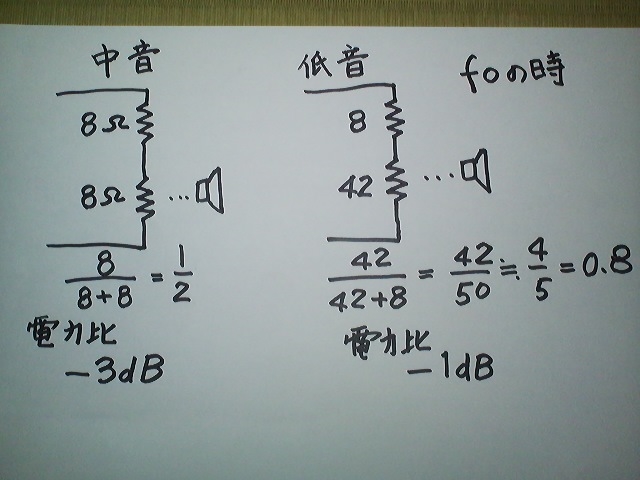 中音
8Ω
8Ω
8/(8+8) = 1/2
電力比
−3dB
低音
foの時
8
42
42/(42+8) = 42/50 ≒ 4/5 = 0.8
電力比
−1dB